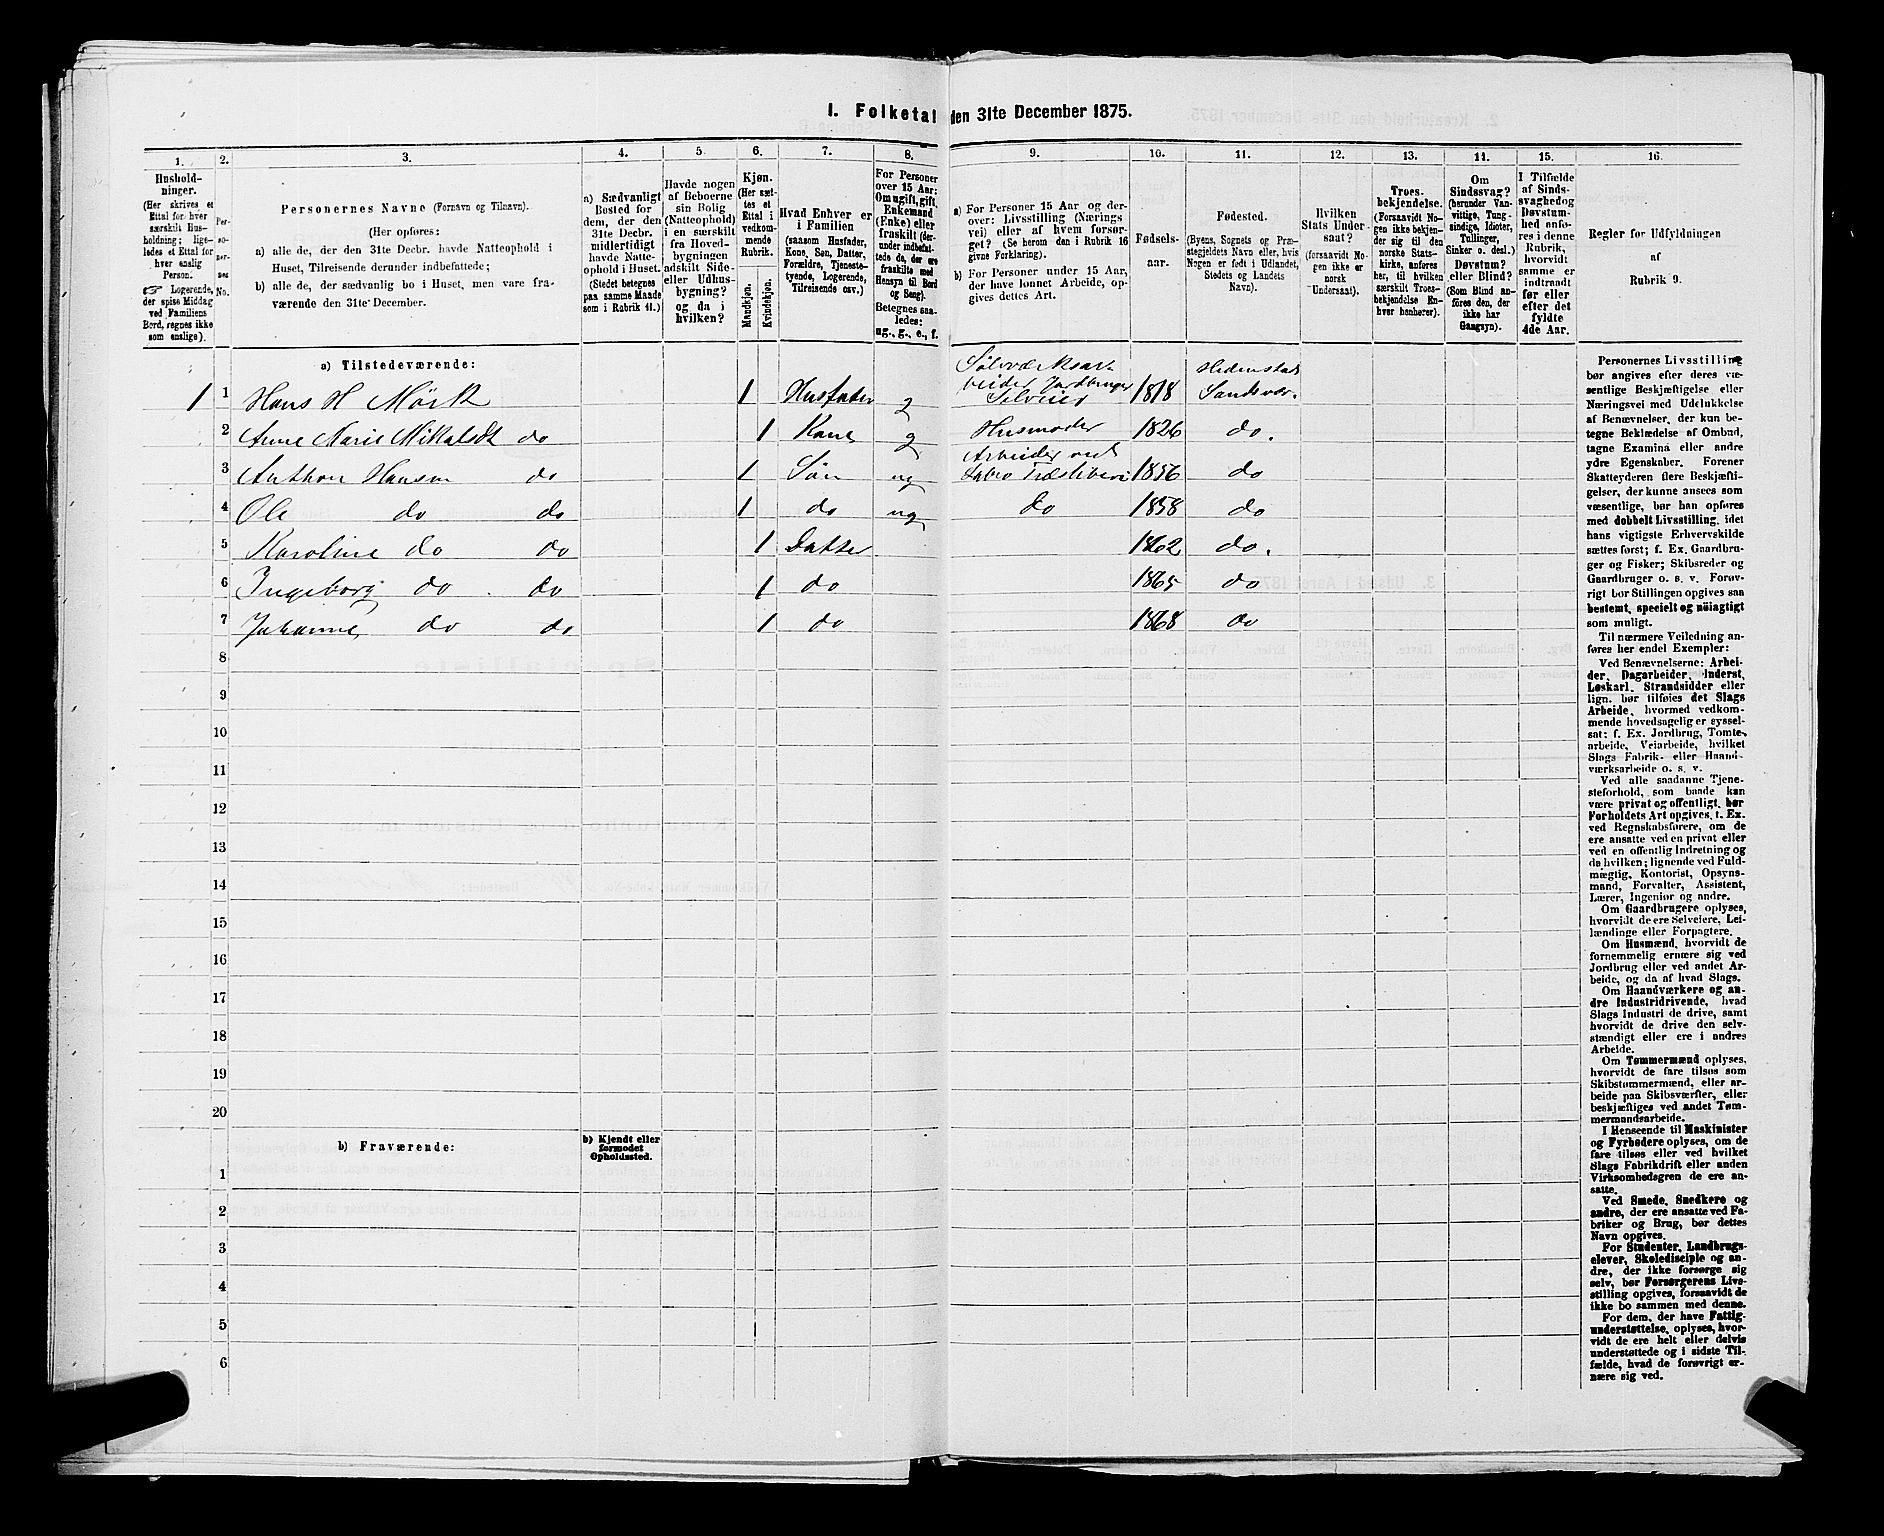 I. Folketal den 31te December 1875.
1. 2. 3. 4. 5. 6. 7. 8. 9. 10. 11. 12. 13. 14. 15. 16.
Hushold-
ninger.
(Her skrives et
Ettal for hver
særskilt Hus-
holdning; lige-
ledes et Ettal for
hver enslig
Person.
☞ Logerende,
der spise Middag
ved Familiens
Bord, regnes ikke
som enslige).
Per-
so-
ner-
nes
No.
Personernes Navne (Fornavn og Tilnavn).
(Her opføres:
a) alle de, der den 31te Decbr. havde Natteophold i
Huset, Tilreisende derunder indbefattede;
b) alle de, der sædvanlig bo i Huset, men vare fra-
værende den 31te December.
a) Sædvanligt
Bosted for
dem, der den
31te Decbr.
midlertidigt
havde Natte-
ophold i Huset.
(Stedet betegnes
paa samme Maade
som i Rubrik 11.)
Havde nogen
af Beboerne
sin Bolig
(Natteophold)
i en særskilt
fra Hoved-
bygningen
adskilt Side-
eller Udhus-
bygning?
og da i
hvilken?
Kjøn.
(Her sæt-
tes et
Ettal i
vedkom-
mende
Rubrik.
Mandkjøn.
Kvindekjøn.
Hvad Enhver er
i Familien
(saasom Husfader,
Kone, Søn, Datter,
Forældre, Tjeneste-
tyende, Logerende,
Tilreisende osv.)
For Personer
over 15 Aar:
Om ugift, gift,
Enkemand
(Enke) eller
fraskilt (der-
under indbefat-
tede de, der ere
fraskilte med
Hensyn til Bord
og Seng).
Betegnes saa-
ledes:
ug., g., e., f.
a) For Personer 15 Aar og der-
over: Livsstilling (Nærings
vei) eller af hvem forsør-
get? (Se herom den i Rubrik 16
givne Forklaring).
b) For Personer under 15 Aar,
der have lønnet Arbeide, op-
gives dettes Art.
Fødsels-
aar.
Fødested.
(Byens, Sognets og Præ-
stegjeldets Navn eller, hvis
Nogen er født i Udlandet,
Stedets og Landets
Navn).
Hvilken
Stats Under-
saat?
(forsaavidt No-
gen ikke er
norsk
Undersaat).
Troes-
bekjendelse.
(Forsaavidt No-
gen ikke bekjen-
der sig til den
norske Stats-
kirke, anføres
her, til hvilken
særskilt Troes-
bekjendelse En-
hver henhører).
Om
Sindssvag?
(herunder Van-
vittige, Tung-
sindige, Idioter,
Tullinger,
Sinker o. desl.)
Døvstum?
eller Blind?
(Som Blind an-
føres den, der
ikke har
Gangsyn).
I Tilfælde
af Sinds-
svaghed og
Døvstum-
hed anfø-
res i denne
Rubrik,
hvorvidt
samme er
indtraadt
før eller
efter det
fyldte
4de Aar.
Regler for Udfyldningen
af
Rubrik 9.
a) Tilstedeværende:
1 1 Hans H Mörk 1 Husfader g Sölvværksar-
beider Jordbruger
Selveier 1818 Hedenstad
Sandsvær.
2 Anne Marie Mikalsdt do 1 Kone g Husmoder 1826 do.
3 Anthon Hansen do 1 Søn ug Arbeider ved
Labro Træsliberi 1856 do
4 Ole do do 1 do ug do 1858 do
5 Karoline do do 1 Datter 1862 do.
6 Ingeborg do do 1 do 1865 do
7 Johanne do do 1 do 1868 do
8
9
10
11
12
13
14
15
16
17
18
19
20
b) Fraværende: b) Kjendt eller
formodet
Opholdssted.
1
2
3
4
5
6
Personernes Livsstilling
bør angives efter deres væ-
sentlige Beskjæftigelse eller
Næringsvei med Udelukkelse
af Benævnelser, der kun be-
tegne Beklædelse af Ombud,
tagne Examina eller andre
ydre Egenskaber. Forener
Skatteyderen flere Beskjæfti-
gelser, der kunne ansees som
væsentlige, bør han opføres
med dobbelt Livsstilling, idet
hans vigtigste Erhvervskilde
sættes først; f. Ex. Gaardbru-
ger og Fisker; Skibsreder og
Gaardbruger o. s. v. Forøv-
rigt bør Stillingen opgives saa
bestemt, specielt og nøiagtigt
som muligt.
Til nærmere Veiledning an-
føres her endel Exempler:
Ved Benævnelserne: Arbei-
der, Dagarbeider, Inderst,
Løskarl, Strandsidder eller
lign. bør tilføies det Slags
Arbeide, hvormed vedkom-
mende hovedsagelig er syssel-
sat: f. Ex. Jordbrug, Tomte-
arbeide, Veiarbeide, hvilket
Slags Fabrik- eller Haand-
værksarbeide o. s. v.
Ved alle saadanne Tjene-
steforhold, som baade kan
være privat og offentligt, bør
Forholdets Art opgives, t. Ex.
ved Regnskabsførere, om de
ere ansatte ved en privat eller
ved en offentlig Indretning og
da hvilken; lignende ved Fuld-
mægtig, Kontorist, Opsyns-
mand, Forvalter, Assistent,
Lærer, Ingeniør og andre.
Om Gaardbrugere oplyses,
hvorvidt de ere Selveiere, Lei-
lændinge eller Forpagtere.
Om Husmænd, hvorvidt de
fornemmelig ernære sig ved
Jordbrug eller ved andet Ar-
beide, og da af hvad Slags.
Om Haandværkere og an-
dre Industridrivende, hvad
Slags Industri de drive, samt
hvorvidt de drive den selv-
stændigt eller ere i andres
Arbeide.
Om Tømmermænd oplyses,
hvorvidt de fare tilsøs som
Skibstømmermænd, eller ar-
beide paa Skibsværfter, eller
beskjæftiges ved andet Tøm-
mermandsarbeide.
I Henseende til Maskinister
og Fyrbødere oplyses, om de
fare tilsøs eller ved hvilket
Slags Fabrikdrift eller anden
Virksomhedsgren de ere an-
satte.
Ved Smede, Snedkere og
andre, der ere ansatte ved Fa-
briker og Brug, bør dettes
Navn opgives.
For Studenter, Landbrugs-
elever, Skoledisciple og an-
dre, der ikke forsørge sig
selv, bør Forsørgerens Livs-
stilling opgives, forsaavidt de
ikke bo sammen med denne.
For dem, der have Fattig-
understøttelse, oplyses, hvor-
vidt de ere helt eller delvis
understøttede og i sidste Til-
fælde, hvad de forøvrigt er-
nære sig ved.